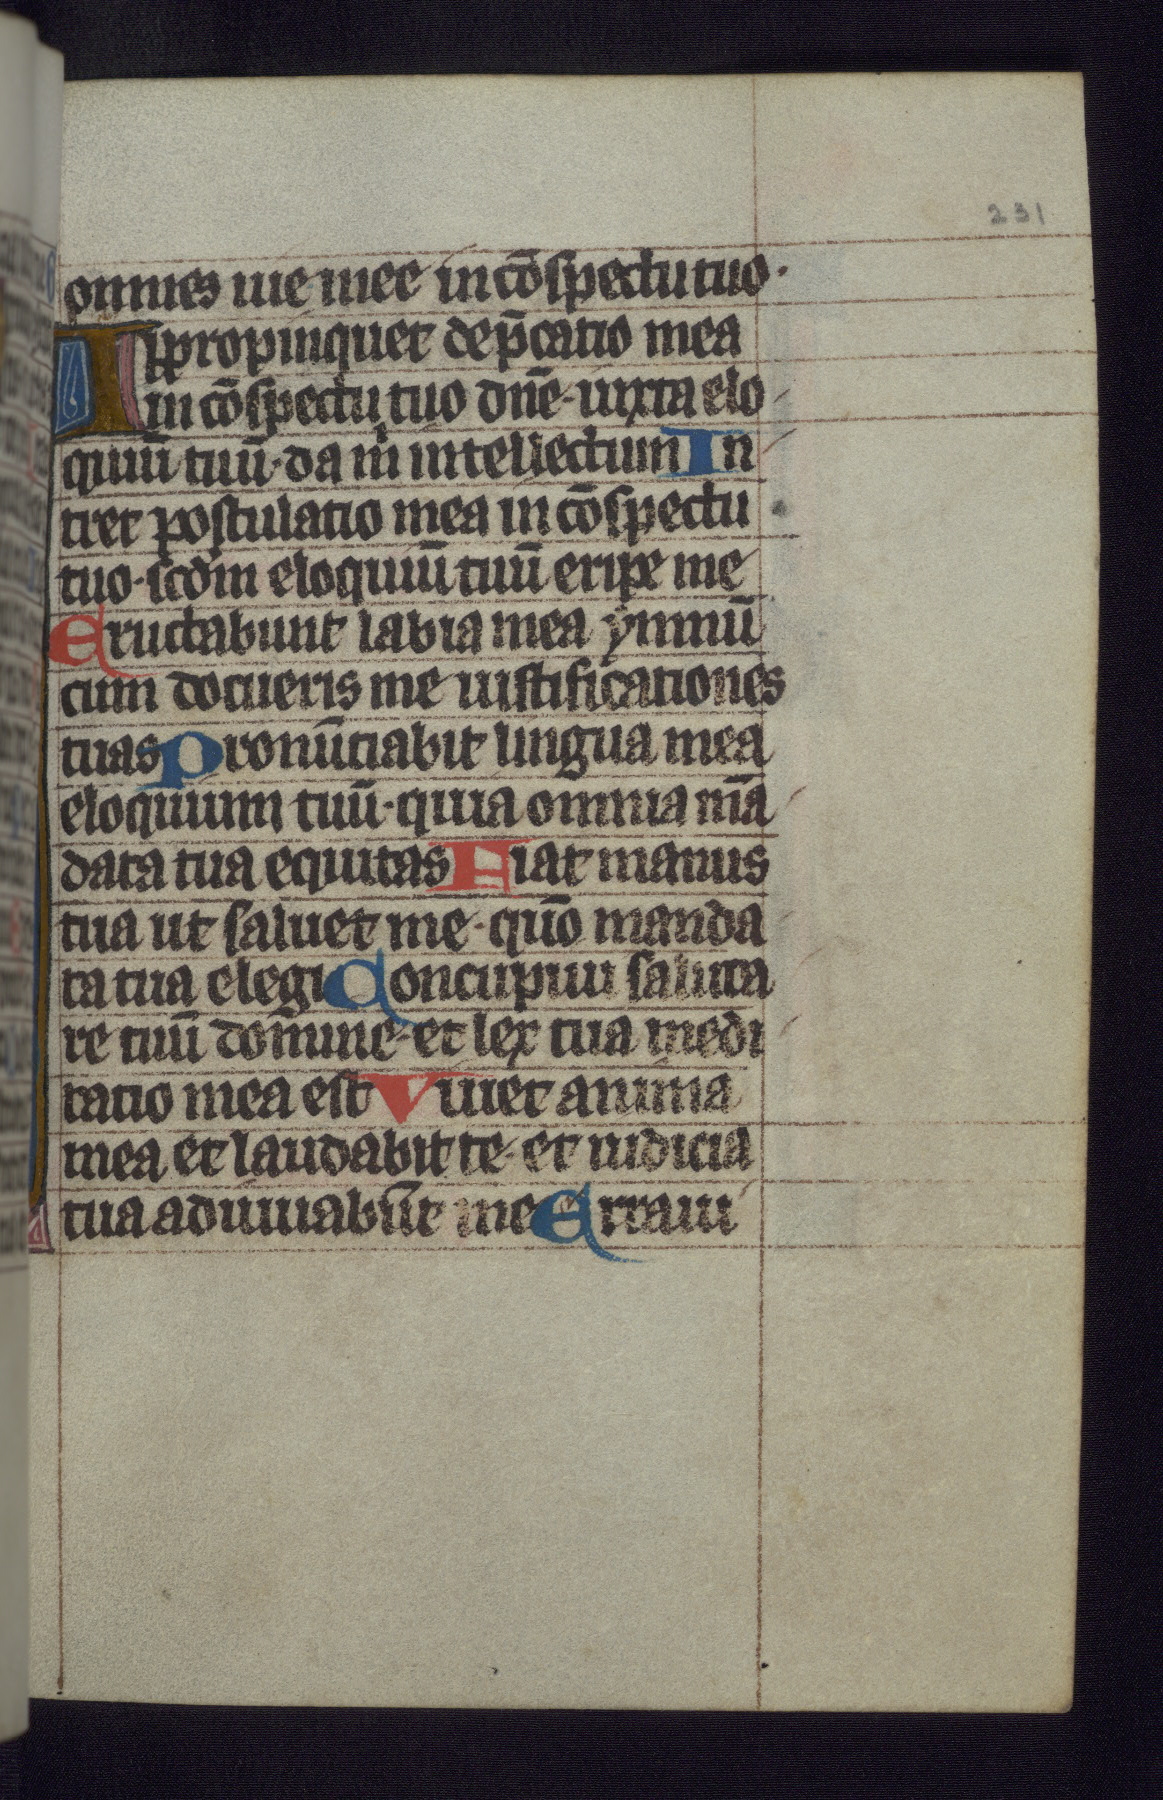 231
omnes uie mee in cōspectu tuo.
Appropinquet dep̄catio mea
in cōspectu tuo dñe. iuxta elo
quiū tuū. da m̄ intellectum In
tret postulatio mea in cōspectu
tuo. scdm eloquiū tuū eripe me
Eructabunt labia mea ymnū
cum docueris me iustificationes
tuas Pronūciabit lingua mea
eloquium tuū. quia omnia mā
data tua equitas Fiat manus
tua ut saluet me. quō manda
ta tua elegi Concupiui saluta
re tuū domine. et lex tua medi
tatio mea est Viuet anima
mea et laudabit te. et iudicia
tua adiuuabūt me Erraui